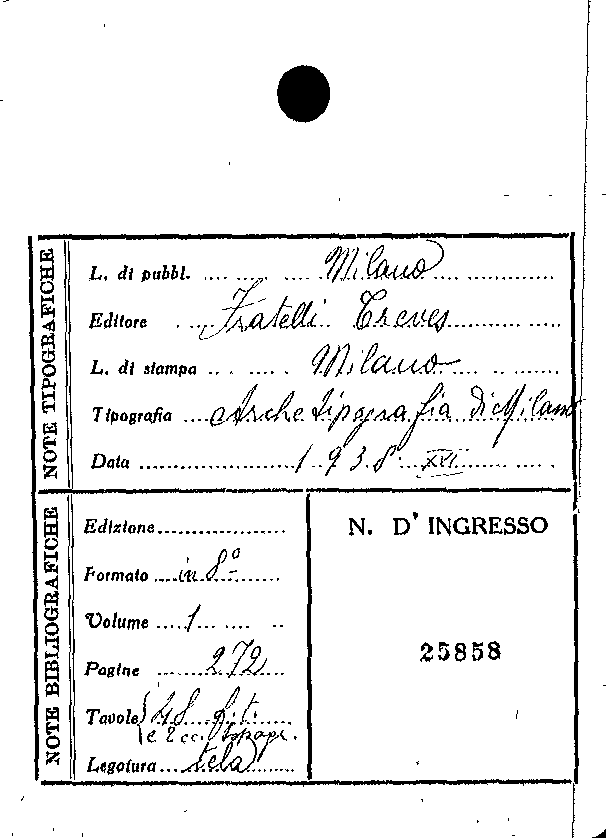 NOTE TIPOGRAFICHE
L. di pubbl. Milano
Editore Fratelli Treves
L. di stampa Milano
Tipografia Archetipografia di Milano
Data 1938 XVI
NOTE BIBLIOGRAFICHE
Edizione
Formato in 8º
Volume 1
Pagine 272
Tavole 48 f.t.
e 2 cc. topogr.
Legatura tela
N. D'INGRESSO
25858